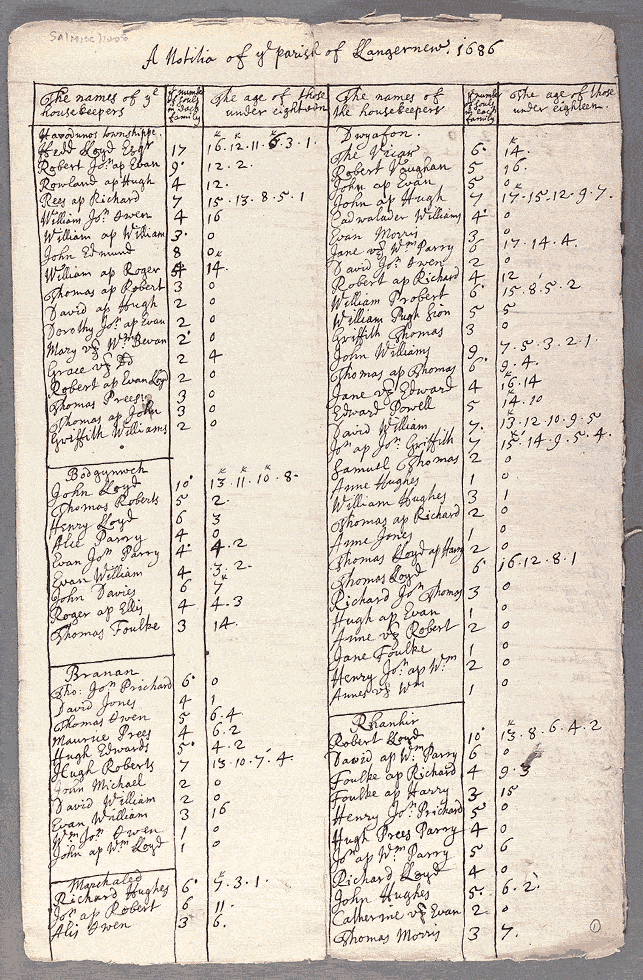 A Notitia of yᵉ parish of Llangernew. 1686
The names of yᵉ housekeepers
yᵉ number of souls in each family
The age of those under eighteen
Havodunos townshippe.
Hedd Lloyd Esqʳ 17 16. 12. 11. 6. 3. 1
Robert Joⁿ ap Evan 9 12. 2.
Rowland ap Hugh 4 12.
Rees ap Richard 7 15. 13. 8. 5. 1
William Joⁿ Owen 4 16
William ap William 3 0
John Edmund 8 0
William ap Roger 4 14.
Thomas ap Robert 3 0
David ap Hugh 2 0
Dorothy Joⁿ ap Evan 2 0
Mary vʒ Wᵐ Bevan 2 0
Grace vʒ Dd 2 4
Robert ap Evan Lloyd 2 0
Thomas Preese 3 0
Thomas ap John 3 0
Griffith Williams 2 0
Bodgynwch
John Lloyd 10 13. 11. 10. 8
Thomas Roberts 5 2.
Henry Lloyd 6 3
Alice Parry 4 0
Evan Joⁿ Parry 4 4. 2
Evan William 4 3. 2.
John Davies 6 7
Roger ap Ellis 4 4. 3
Thomas Foulke 3 14.
Branan
Tho: Joⁿ Prichard 6 0
David Jones 4 1
Thomas Owen 5 6. 4
Maurice Prees 4 6. 2
Hugh Edwards 5 4. 2
Hugh Roberts 7 13. 10. 7. 4.
John Michael 2 0
David William 2 0
Evan William 3 16
Wᵐ Joⁿ Owen 1 0
John ap Wᵐ Lloyd 1 0
Marchaled
Richard Hughes 6 7. 3. 1.
Joⁿ ap Robert 6 11.
Alis Owen 3 6.
The names of the housekeepers
yᵉ number of souls in each family
The age of those under eighteen.
Dwyafon.
The Vicar 6 14.
Robert Vaughan 5 16
John ap Evan 5 0
John ap Hugh 7 17. 15. 12. 9. 7.
Cadwalader Williams 4 0
Evan Morris 3 0
Jane vʒ Wᵐ Parry 6 17. 14. 4.
David Joⁿ Owen 2 0
Robert ap Richard 4 12
William Probert 6 15. 8. 5. 2
William Pugh Sion 5 5
Griffith Thomas 3 0
John Williams 9 7. 5. 3. 2. 1
Thomas ap Thomas 6 9. 4.
Jane vʒ Edward 4 16. 14
Edward Powell 5 14. 10
David William 7 13. 12. 10. 9. 5
Joⁿ ap Joⁿ Griffith 7 15. 14. 9. 5. 4.
Samuel Thomas 2 0
Anne Hughes 1 0
William Hughes 3 1
Thomas ap Richard 2 0
Anne Jones 1 0
Thomas Lloyd ap Harry 2 0
Thomas Lloyd 6 16. 12. 8. 1
Richard Joⁿ Thomas 3 0
Hugh ap Evan 1 0
Anne vʒ Robert 2 0
Jane Foulke 1 0
Henry Joⁿ ap Wᵐ 2 0
Annes vʒ Wᵐ 1 0
Rhanhir
Robert Lloyd 10 13. 8. 6. 4. 2
David ap Wᵐ Parry 6 0
Foulke ap Richard 4 9. 3
Foulke ap Harry 3 15
Henry Joⁿ Prichard 5 0
Hugh Prees Parry 4 0
Joⁿ ap Wᵐ Parry 5 6
Richard Lloyd 4 0
John Hughes 5 6. 2
Catherine vʒ Evan 2 0
Thomas Morris 3 7.
1